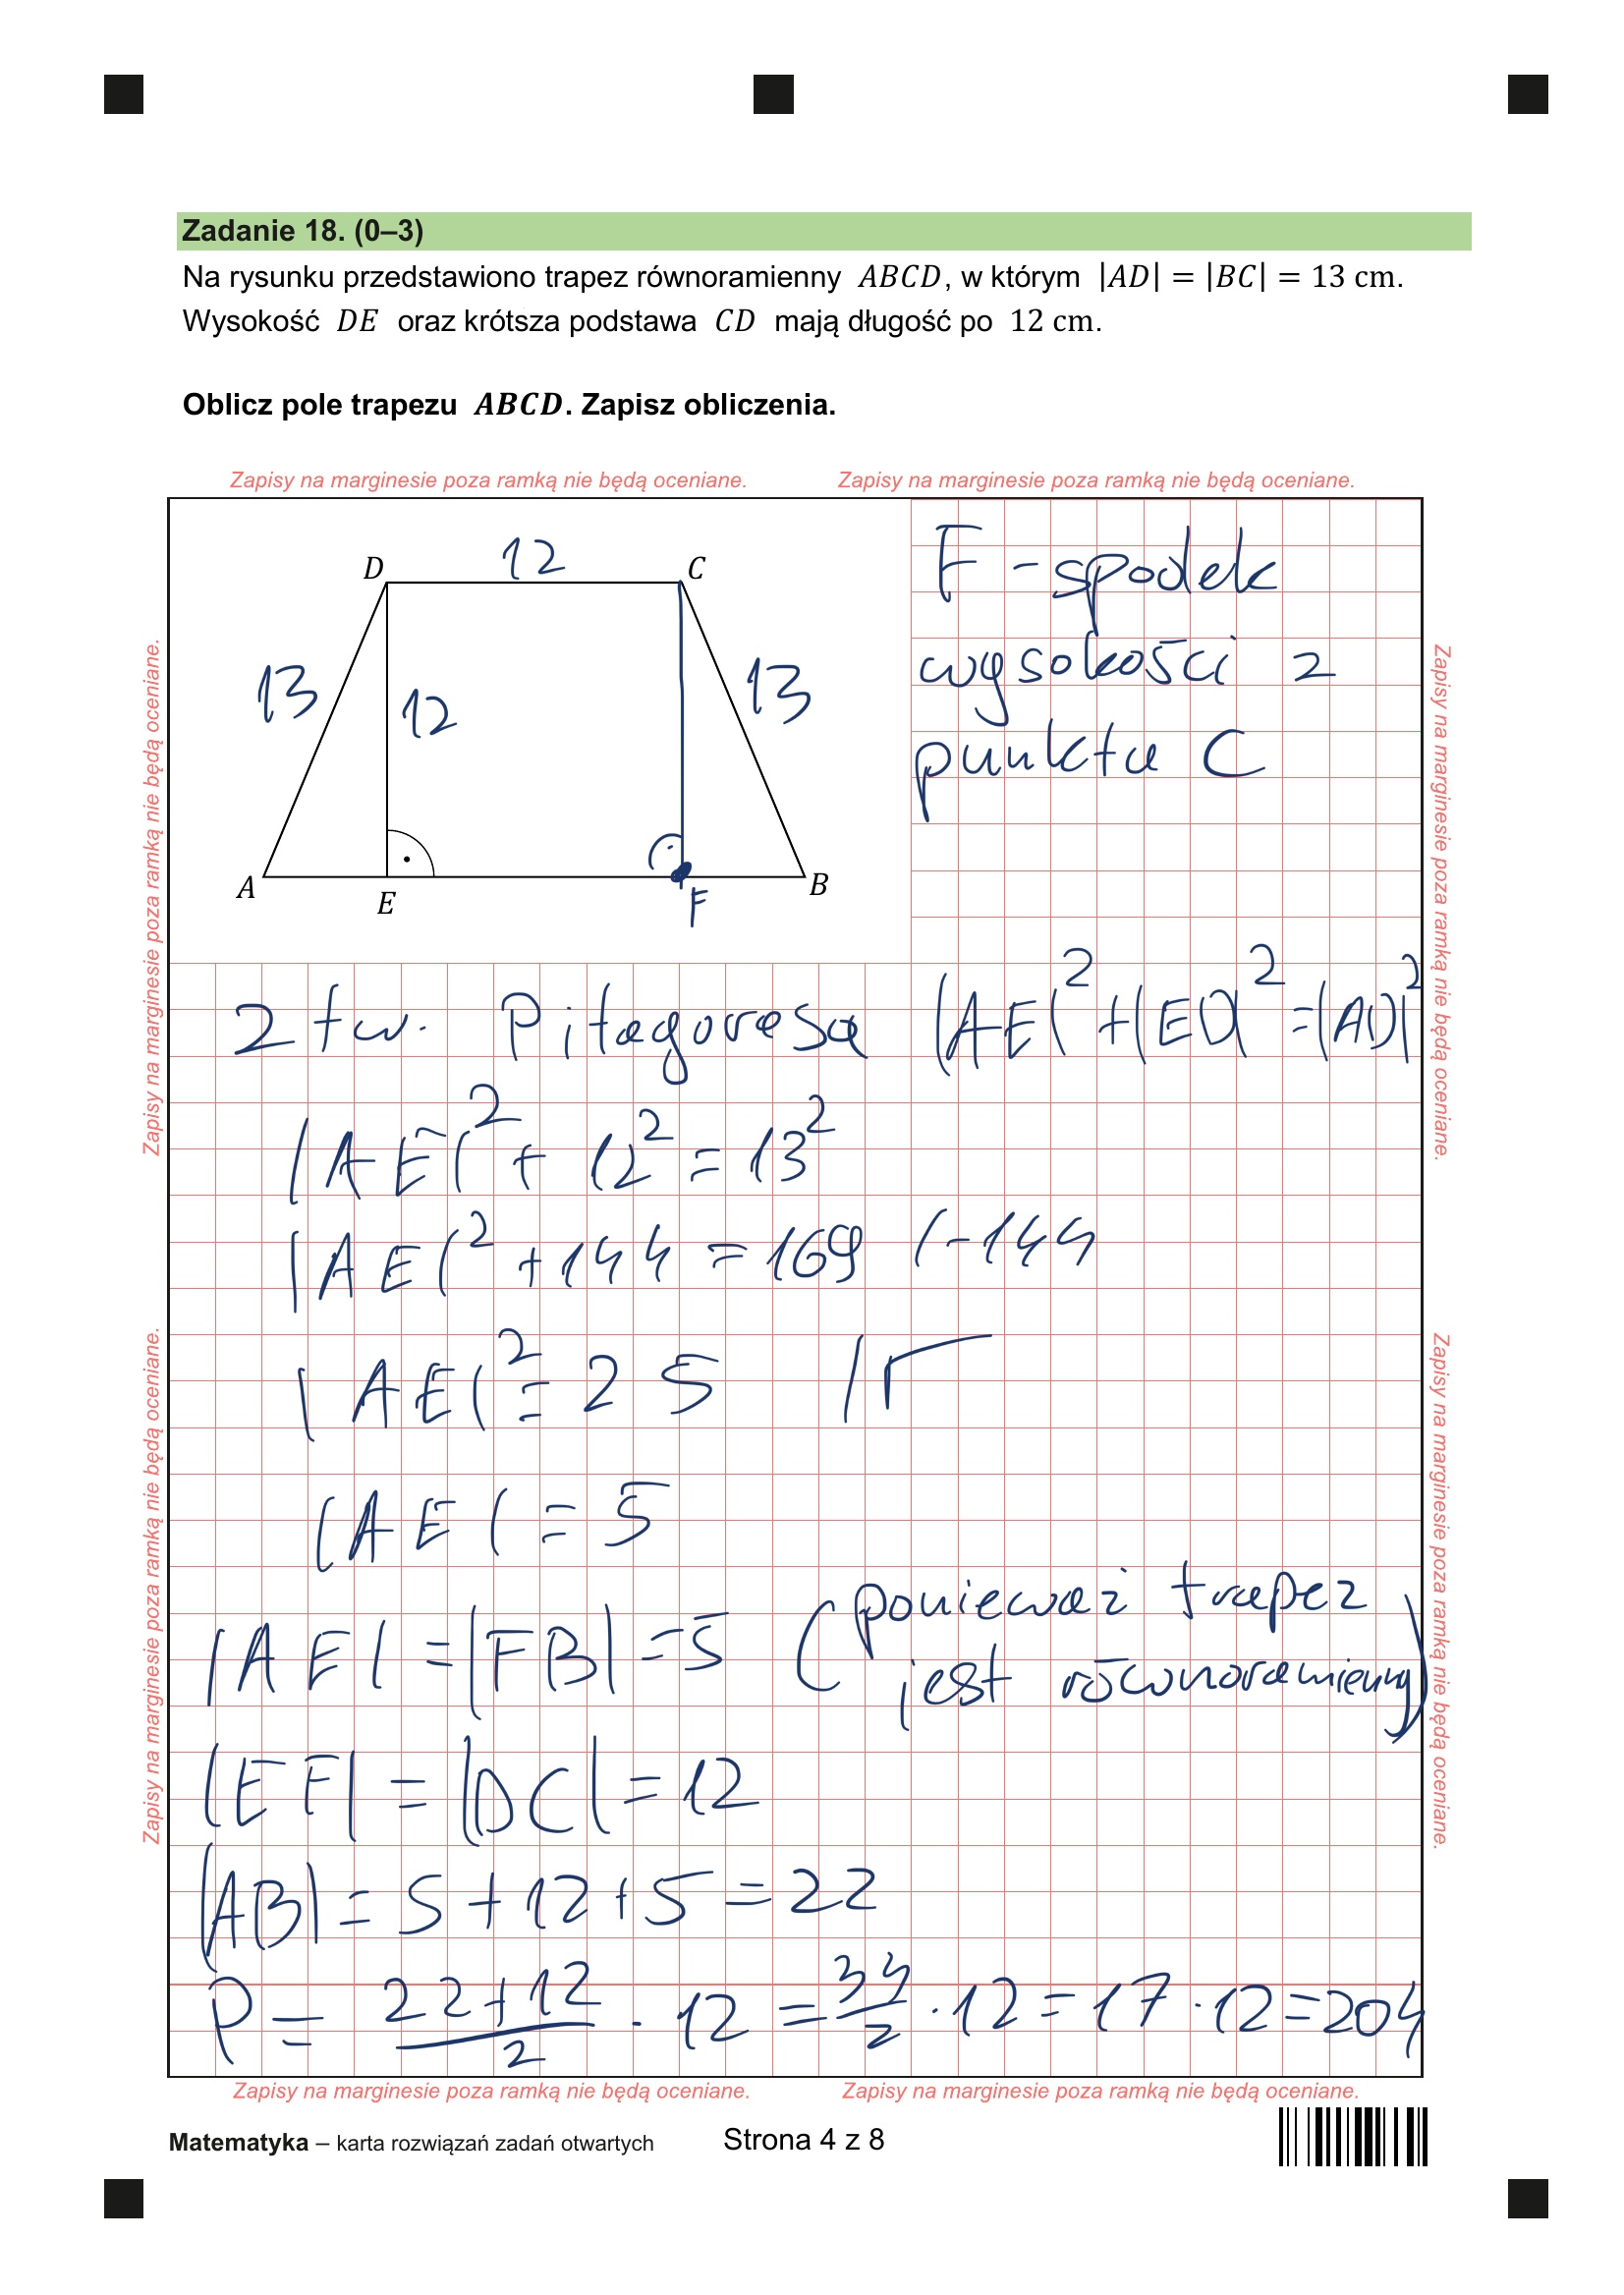 Zadanie 18. (0–3)
Na rysunku przedstawiono trapez równoramienny ABCD, w którym |AD| = |BC| = 13 cm.
Wysokość DE oraz krótsza podstawa CD mają długość po 12 cm.
Oblicz pole trapezu ABCD. Zapisz obliczenia.
Zapisy na marginesie poza ramką nie będą oceniane. Zapisy na marginesie poza ramką nie będą oceniane.
Zapisy na marginesie poza ramką nie będą oceniane.
Zapisy na marginesie poza ramką nie będą oceniane.
Zapisy na marginesie poza ramką nie będą oceniane.
Zapisy na marginesie poza ramką nie będą oceniane.
D 12 C
13 12 13
A E F B
F - spodek
wysokości z
punktu C
z tw. Pitagorasa |AE|² + |ED|² = |AD|²
|AE|² + 12² = 13²
|AE|² + 144 = 169 /-144
|AE|² = 25 /√
|AE| = 5
|AE| = |FB| = 5 (ponieważ trapez
jest równoramienny)
|EF| = |DC| = 12
|AB| = 5 + 12 + 5 = 22
P = (22+12)/2 · 12 = 34/2 · 12 = 17 · 12 = 204
Zapisy na marginesie poza ramką nie będą oceniane. Zapisy na marginesie poza ramką nie będą oceniane.
Matematyka – karta rozwiązań zadań otwartych Strona 4 z 8